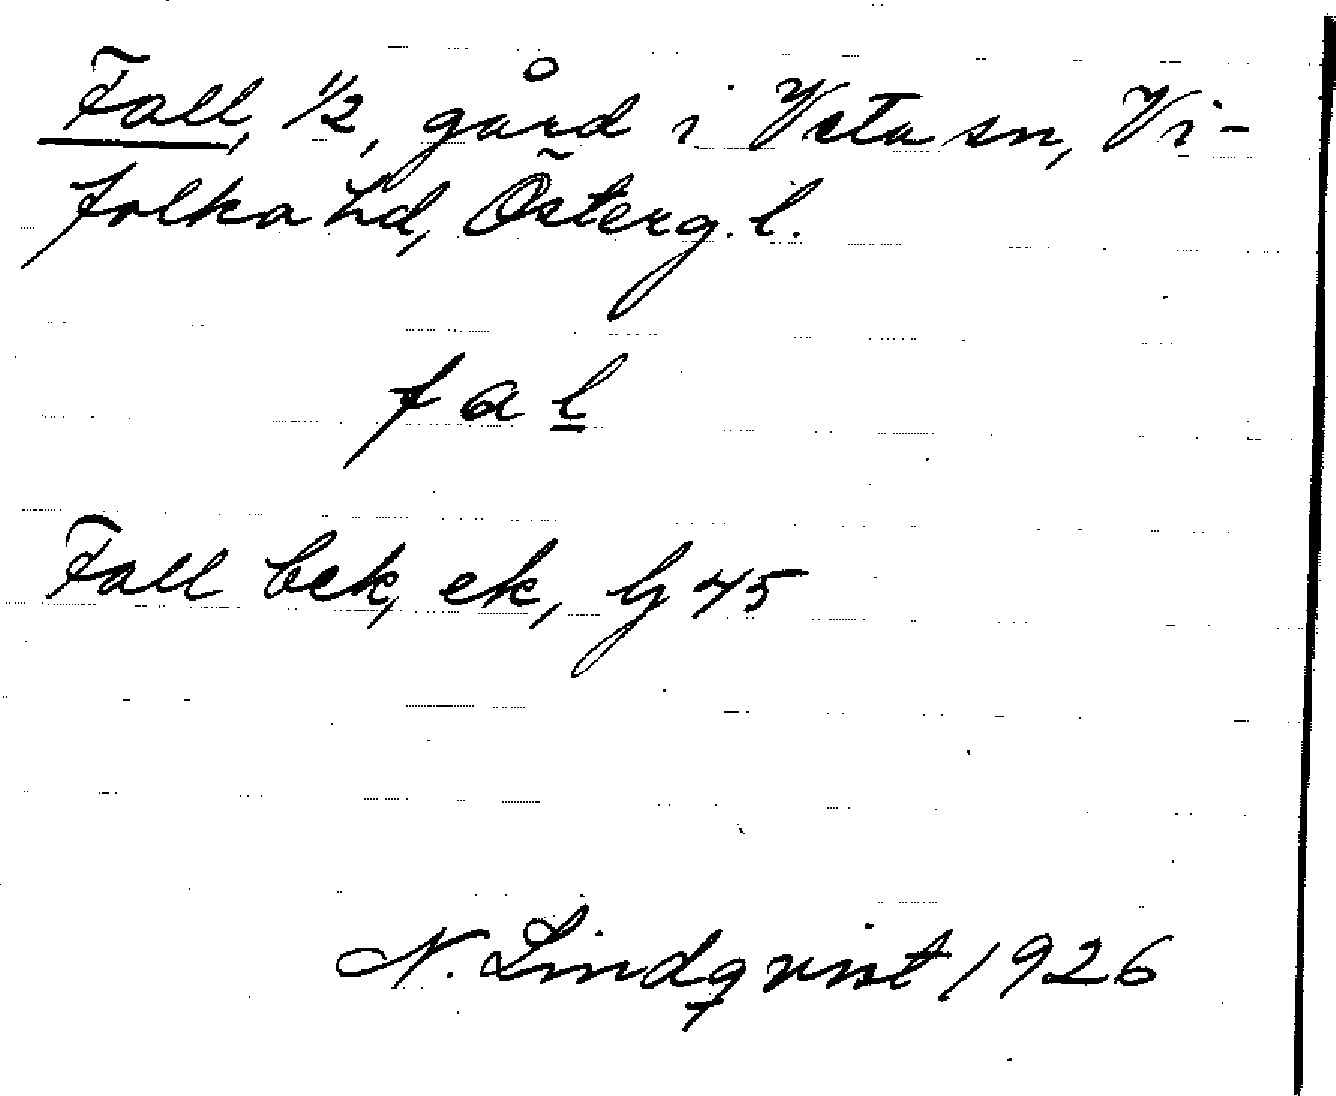 Fall, 1/2, gård i Veta sn, Vi-
folka hd, Österg. l.
fal
Fall bek, ek, Gj 45
N. Lindqvist 1926